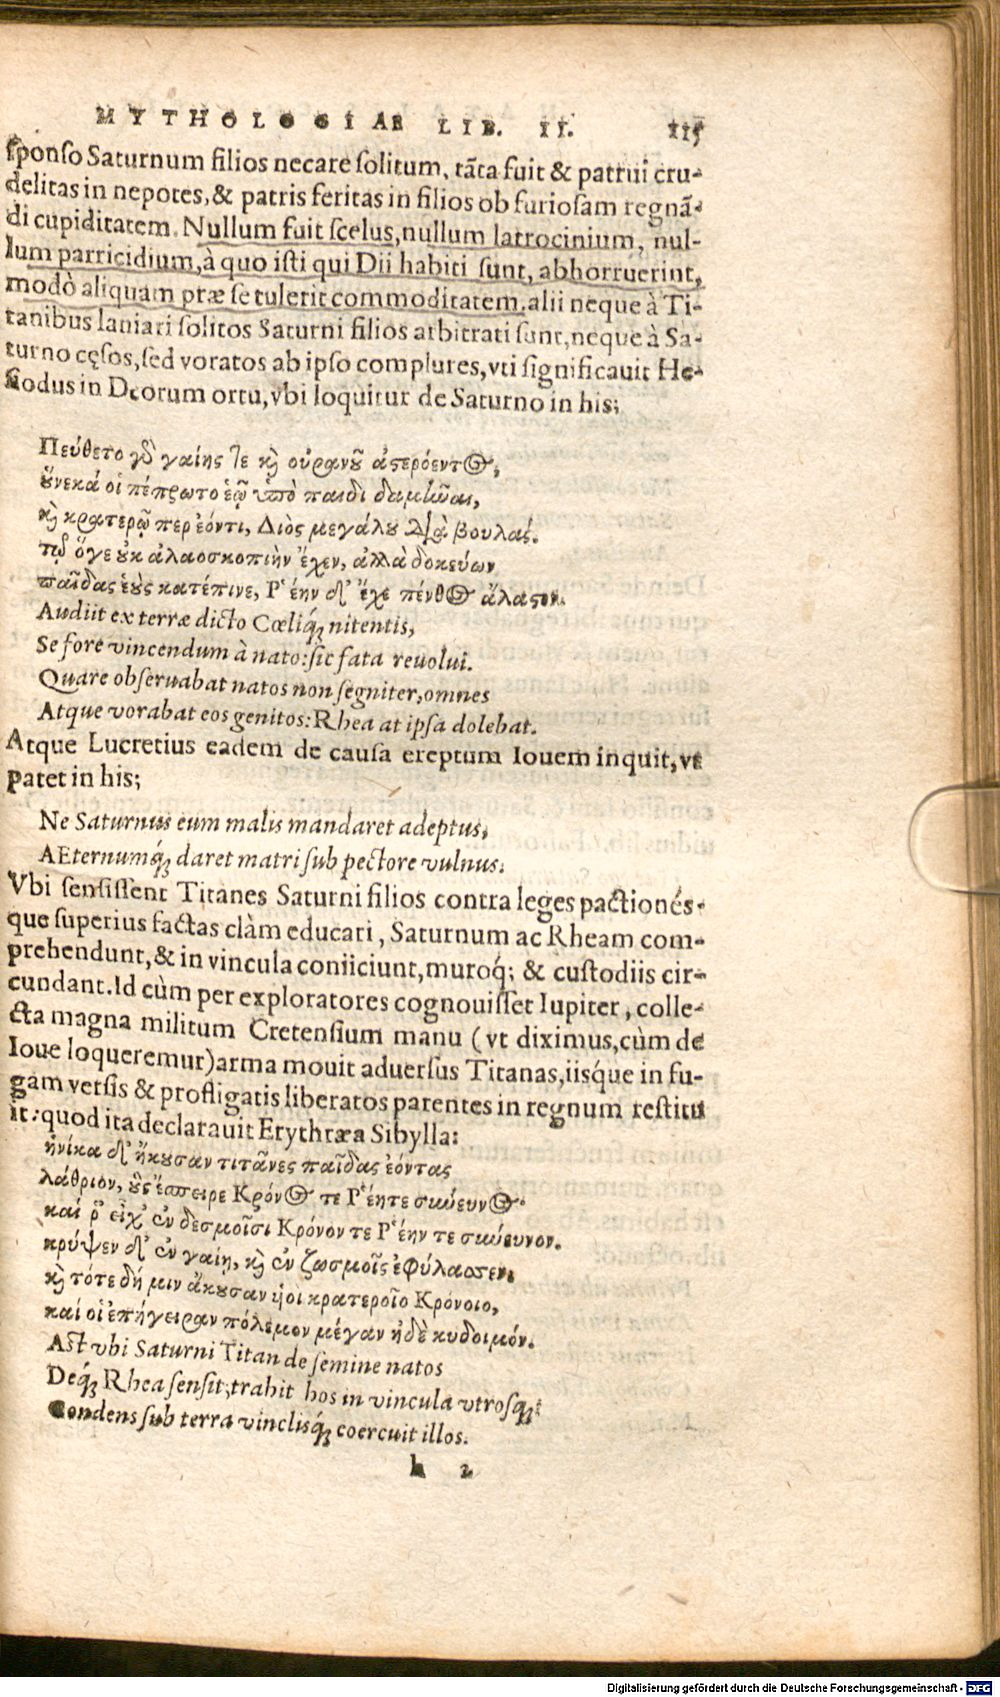 MYTHOLOGIAE LIB. II. 115
sponso Saturnum filios necare solitum, tãta fuit & patrui cru-
delitas in nepotes, & patris feritas in filios ob furiosam regnã-
di cupiditatem. Nullum fuit scelus, nullum latrocinium, nul-
lum parricidium, à quo isti qui Dii habiti sunt, abhorruerint,
modò aliquam præ se tulerit commoditatem. alii neque à Ti-
tanibus laniari solitos Saturni filios arbitrati sunt, neque à Sa-
turno cęsos, sed voratos ab ipso complures, vti significauit He-
siodus in Deorum ortu, vbi loquitur de Saturno in his;
Πεύθετο γὸ γαίης τε κὶ οὐρανοῦ ἀστερόεντος,
οὕνεκά οἱ πέπρωτο ἑῷ ὑπὸ παιδὶ δαμῆναι,
κὶ κρατερῷ περ ἐόντι, Διὸς μεγάλου διὰ βουλάς.
τῷ ὅγε οὐκ ἀλαοσκοπιὴν ἔχεν, ἀλλὰ δοκεύων
παῖδας ἑοὺς κατέπινε, Ῥέην δ' ἔχε πένθος ἄλαστον.
Audiit ex terræ dicto Cœliq́; nitentis,
Se fore vincendum à nato: sic fata reuolui.
Quare obseruabat natos non segniter, omnes
Atque vorabat eos genitos: Rhea at ipsa dolebat.
Atque Lucretius eadem de causa ereptum Iouem inquit, vt
patet in his;
Ne Saturnus eum malis mandaret adeptus,
AEternumq́; daret matri sub pectore vulnus.
Vbi sensissent Titanes Saturni filios contra leges pactionés-
que superius factas clàm educari, Saturnum ac Rheam com-
prehendunt, & in vincula coniiciunt, muroq́; & custodiis cir-
cundant. Id cùm per exploratores cognouisset Iupiter, colle-
cta magna militum Cretensium manu (vt diximus, cùm de
Ioue loqueremur) arma mouit aduersus Titanas, iisque in fu-
gam versis & profligatis liberatos parentes in regnum restitu
it: quod ita declarauit Erythræa Sibylla:
ἡνίκα δ' ἤκουσαν τιτᾶνες παῖδας ἐόντας
λάθριον, οὓς ἔσπειρε Κρόνος τε Ῥέητε σύευνος.
καί ῥ' εἶχ' ἐν δεσμοῖσι Κρόνον τε Ῥέην τε σύευνον.
κρύψεν δ' ἐν γαίῃ, κὶ ἐν ζωσμοῖς ἐφύλασσεν,
κὶ τότε δή μιν ἄκουσαν υἱοὶ κρατεροῖο Κρόνοιο,
καί οἱ ἐπήγειραν πόλεμον μέγαν ἠδὲ κυδοιμόν.
Ast vbi Saturni Titan de semine natos
Deq́; Rhea sensit, trahit hos in vincula vtrosq́;
Condens sub terra vinclisq́; coercuit illos.
h 2
Digitalisierung gefördert durch die Deutsche Forschungsgemeinschaft - DFG